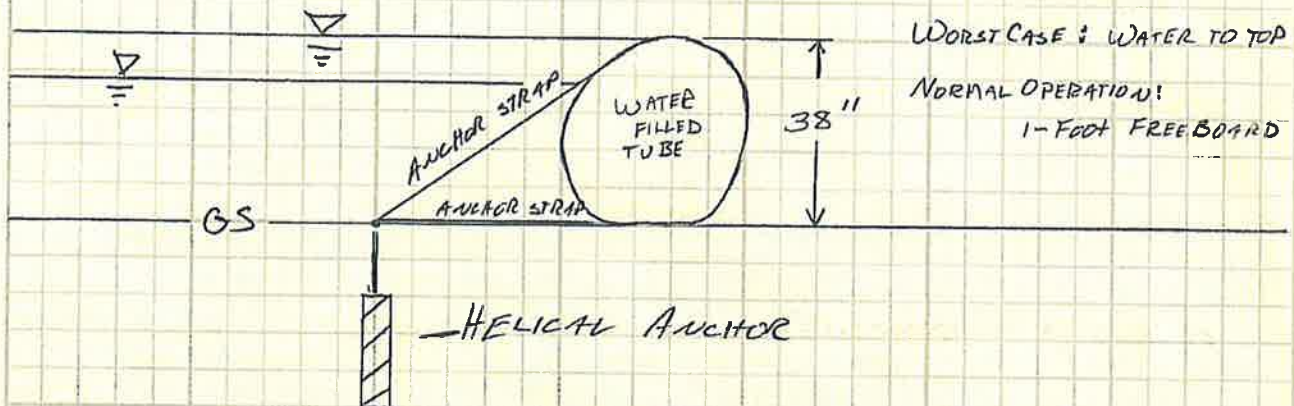 WORST CASE: WATER TO TOP
NORMAL OPERATION:
1-FOOT FREEBOARD
ANCHOR STRAP
WATER
FILLED
TUBE
38"
ANCHOR STRAP
GS
HELICAL ANCHOR